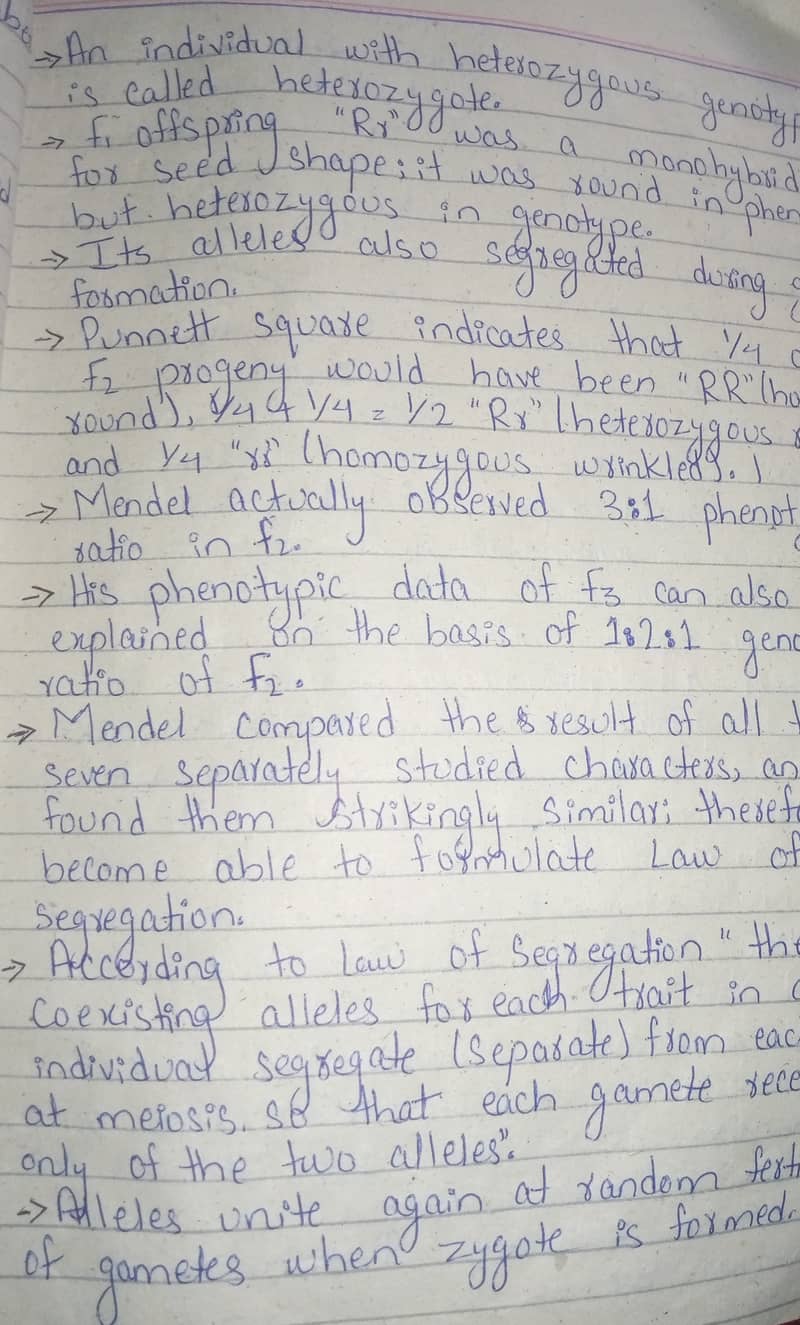 → An individual with heterozygous genotyp
is called heterozygote.
→ F₁ offspring "Rr" was a monohybrid
for seed shape; it was round in phen
but heterozygous in genotype.
→ Its alleles also segregated during g
formation.
→ Punnett square indicates that 1/4 o
F₂ progeny would have been "RR" (ho
round), 1/4 + 1/4 = 1/2 "Rr" (heterozygous r
and 1/4 "rr" (homozygous wrinkled).
→ Mendel actually observed 3:1 phenot
ratio in F₂.
→ His phenotypic data of F₃ can also
explained on the basis of 1:2:1 geno
ratio of F₂.
→ Mendel compared the result of all t
seven separately studied characters, an
found them strikingly similar; theref
become able to formulate Law of
Segregation.
→ According to Law of Segregation "the
coexisting alleles for each trait in a
individual segregate (separate) from eac
at meiosis, so that each gamete rece
only of the two alleles".
→ Alleles unite again at random fert
of gametes when zygote is formed.